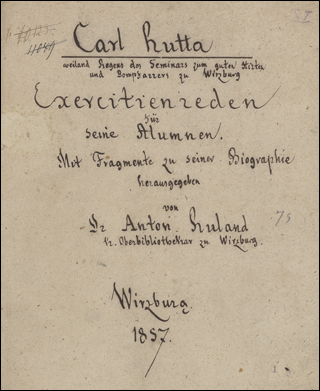 I
4089
Carl Rutta
weiland Regens des Seminars zum guten Hirten
und Dompfarrers zu Wirzburg
Exercitienreden
für
seine Alumnen.
Mit Fragmente zu seiner Biographie
herausgegeben
von
75
Dr Anton Ruland
Oberbibliothekar zu Wirzburg.
Wirzburg.
1857.